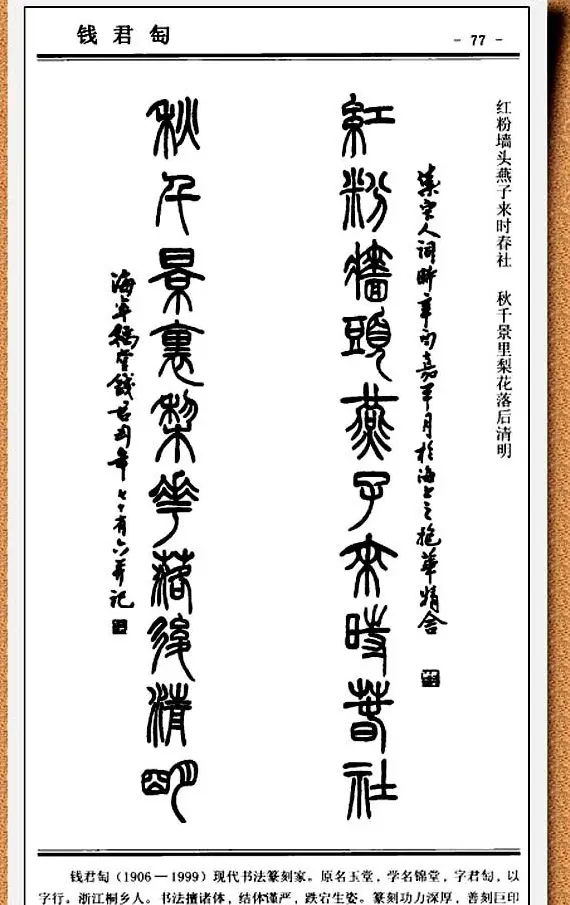 钱君匋
- 77 -
红粉墙头燕子来时春社 秋千景里梨花落后清明
集宋人詞時辛酉嘉平月於海上之抱華精舍
紅粉牆頭燕子來時春社
秋千景裏棃華落後清明
錢君匋年七十有六并記
钱君匋(1906—1999)现代书法篆刻家。原名玉堂,学名锦堂,字君匋,以
字行。浙江桐乡人。书法擅诸体,结体谨严,跌宕生姿。篆刻功力深厚,善刻巨印